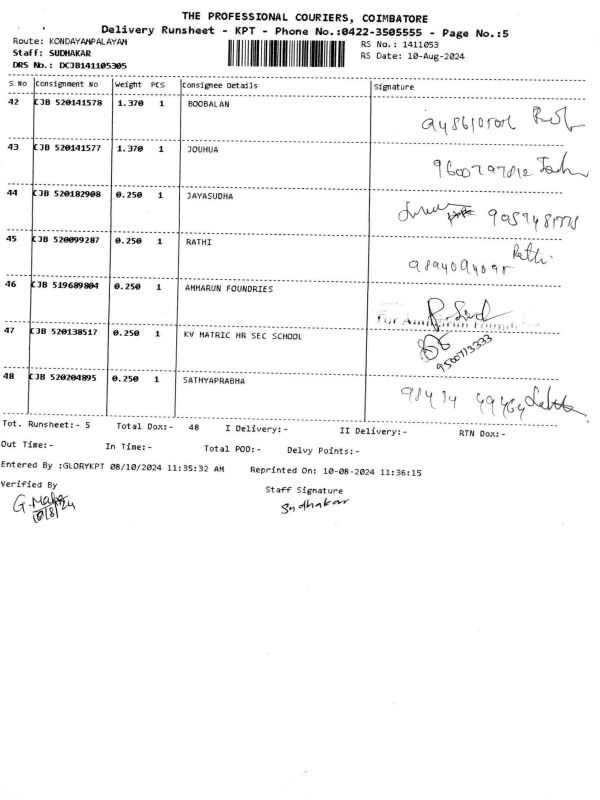 THE PROFESSIONAL COURIERS, COIMBATORE
Delivery Runsheet - KPT - Phone No.:0422-3505555 - Page No.:5
Route: KONDAYAMPALAYAM
RS No.: 1411053
Staff: SUDHAKAR
RS Date: 10-Aug-2024
DRS No.: DCJB141105305
S No Consignment No Weight PCS Consignee Details Signature
42 CJB 520141578 1.370 1 BOOBALAN
43 CJB 520141577 1.370 1 JOUHUA
44 CJB 520182908 0.250 1 JAYASUDHA
45 CJB 520099287 0.250 1 RATHI
Rathi
9894094095
46 CJB 519689804 0.250 1 AMMARUN FOUNDRIES
For Ammarun Foundries
47 CJB 520138517 0.250 1 KV MATRIC HR SEC SCHOOL
9500713333
48 CJB 520204895 0.250 1 SATHYAPRABHA
Tot. Runsheet:- 5 Total Dox:- 48 I Delivery:- II Delivery:- RTN Dox:-
Out Time:- In Time:- Total POD:- Delvy Points:-
Entered By :GLORYKPT 08/10/2024 11:35:32 AM Reprinted On: 10-08-2024 11:36:15
Verified By
Staff Signature
Sudhakar
10/8/24